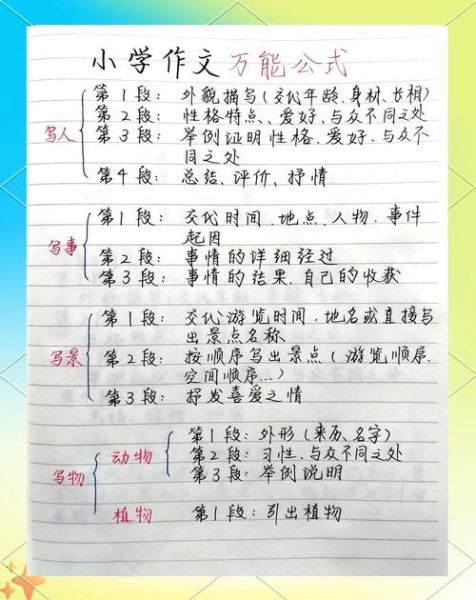 小学作文万能公式
写人
第1段：外貌描写(交代年龄、身材、长相)
第2段：性格特点、爱好、与众不同之处
第3段：举例证明性格、爱好、与众不
同之处
第4段：总结、评价、抒情
写事
第1段：交代时间、地点、人物、事件
起因
第2段：事情的详细经过
第3段：事情的结果、自己的收获
写景
第1段：交代游览时间、地名或直接写
出景点名称
第2段：按顺序写出景点(游览顺序、
空间顺序...)
第3段：抒发喜爱之情
写物
动物
第1段：外形(来历、名字)
第2段：习性、与众不同之处
第3段：举例说明
植物
第1段：引出植物